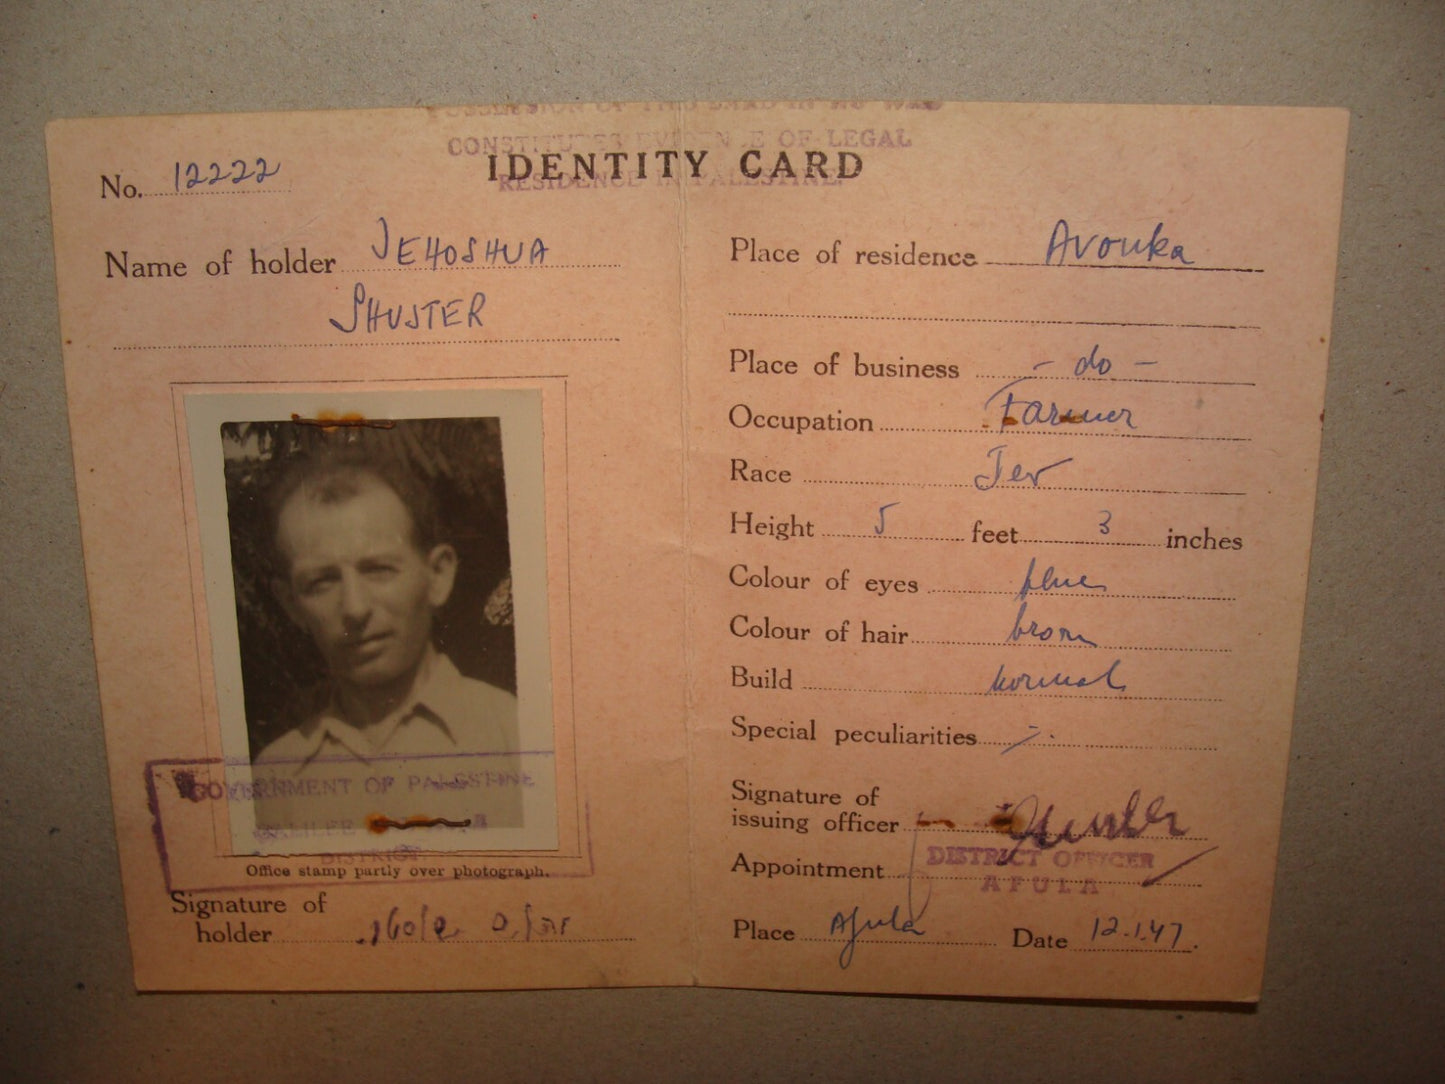 POSSESSION OF THIS CARD IN NO WAY
CONSTITUTES EVIDENCE OF LEGAL
RESIDENCE IN PALESTINE.
IDENTITY CARD
No. 12222
Name of holder JEHOSHUA
SHUSTER
GOVERNMENT OF PALESTINE
GALILEE
DISTRICT.
Office stamp partly over photograph.
Signature of
holder
Place of residence Avouka
Place of business - do -
Occupation Farmer
Race Jew
Height 5 feet 3 inches
Colour of eyes blue
Colour of hair brown
Build normal
Special peculiarities
Signature of
issuing officer
Appointment DISTRICT OFFICER
AFULA
Place Afula Date 12.1.47.